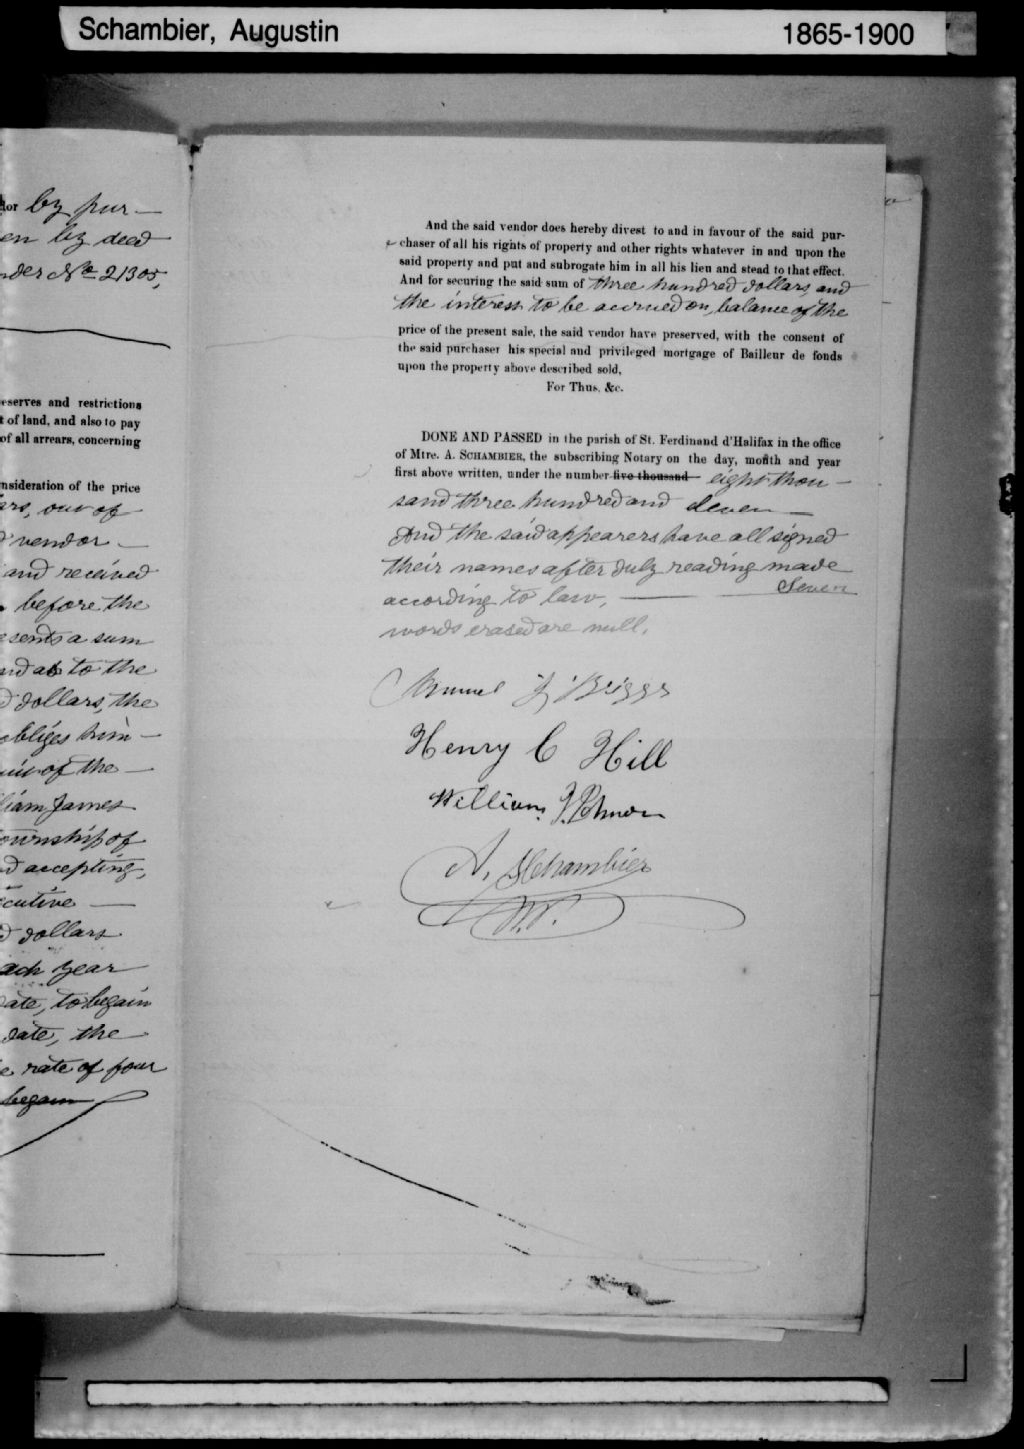 Schambier, Augustin
1865-1900
by pur-
en by deed
nder No 21305,
eserves and restrictions
t of land, and also to pay
of all arrears, concerning
nsideration of the price
ars, out of
d vendor —
and received
before the
esents a sum
to the
d dollars, the
obliges him-
of the —
liam James
ownship of
d accepting,
cutive —
d dollars
ach year
ate, to begain
date, the
e rate of four
begain
And the said vendor does hereby divest to and in favour of the said pur-
chaser of all his rights of property and other rights whatever in and upon the
said property and put and subrogate him in all his lieu and stead to that effect.
And for securing the said sum of three hundred dollars, and
the interest to be accrued on, balance of the
price of the present sale, the said vendor have preserved, with the consent of
the said purchaser his special and privileged mortgage of Bailleur de fonds
upon the property above described sold,
For Thus, &c.
DONE AND PASSED in the parish of St. Ferdinand d'Halifax in the office
of Mtre. A. SCHAMBIER, the subscribing Notary on the day, month and year
first above written, under the number five thousand eight thou-
sand three hundred and eleven —
And the said appearers have all signed
their names after duly reading made
according to law, — Seven
words erased are null.
Briggs
Henry C Hill
William
A. Schambier
N.P.